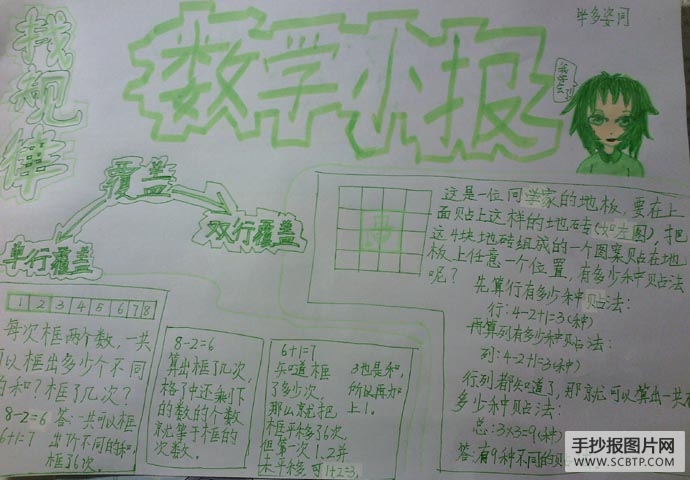 找规律
数学小报
我学会了!
覆盖
单行覆盖
双行覆盖
1 2 3 4 5 6 7 8
每次框两个数,一共
可以框出多少个不同
的和?框了几次?
8-2=6 答:一共可以框
6+1=7 出7个不同的和,
框了6次。
8-2=6
算出框了几次,
格子中还剩下
的数的个数
就等于框的
次数。
6+1=7
知道框
了多少次,
那么就把
框平移6次,
但第一次1、2并
未平移,可1+2=3,
3也是和,
所以再加
上1。
这是一位同学家的地板,要在上
面贴上这样的地砖(如左图),把
这4块地砖组成的一个图案贴在地
板上任意一个位置,有多少种贴法
呢?
先算行有多少种贴法:
行:4-2+1=3(种)
再算列有多少种贴法:
列:4-2+1=3(种)
行列都知道了,那就可以算出一共有
多少种贴法:
总:3×3=9(种)
答:有9种不同的贴
手抄报图片网
WWW.SCBTP.COM